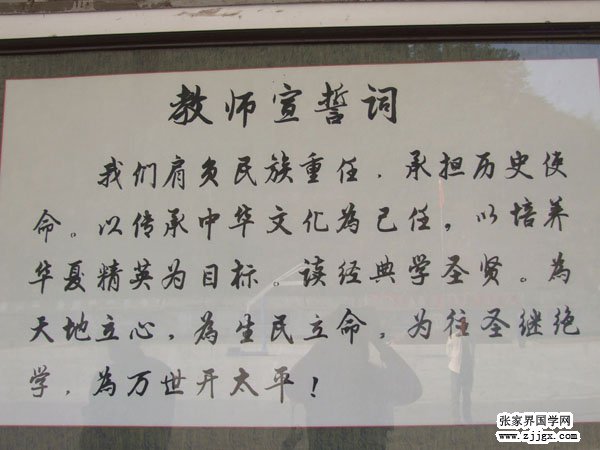 教师宣誓词
我们肩负民族重任．承担历史使
命。以传承中华文化為己任，以培养
华夏精英为目标。读经典学圣贤。為
天地立心，為生民立命，为往圣继绝
学，為万世开太平！
张家界国学网
www.zjjgx.com